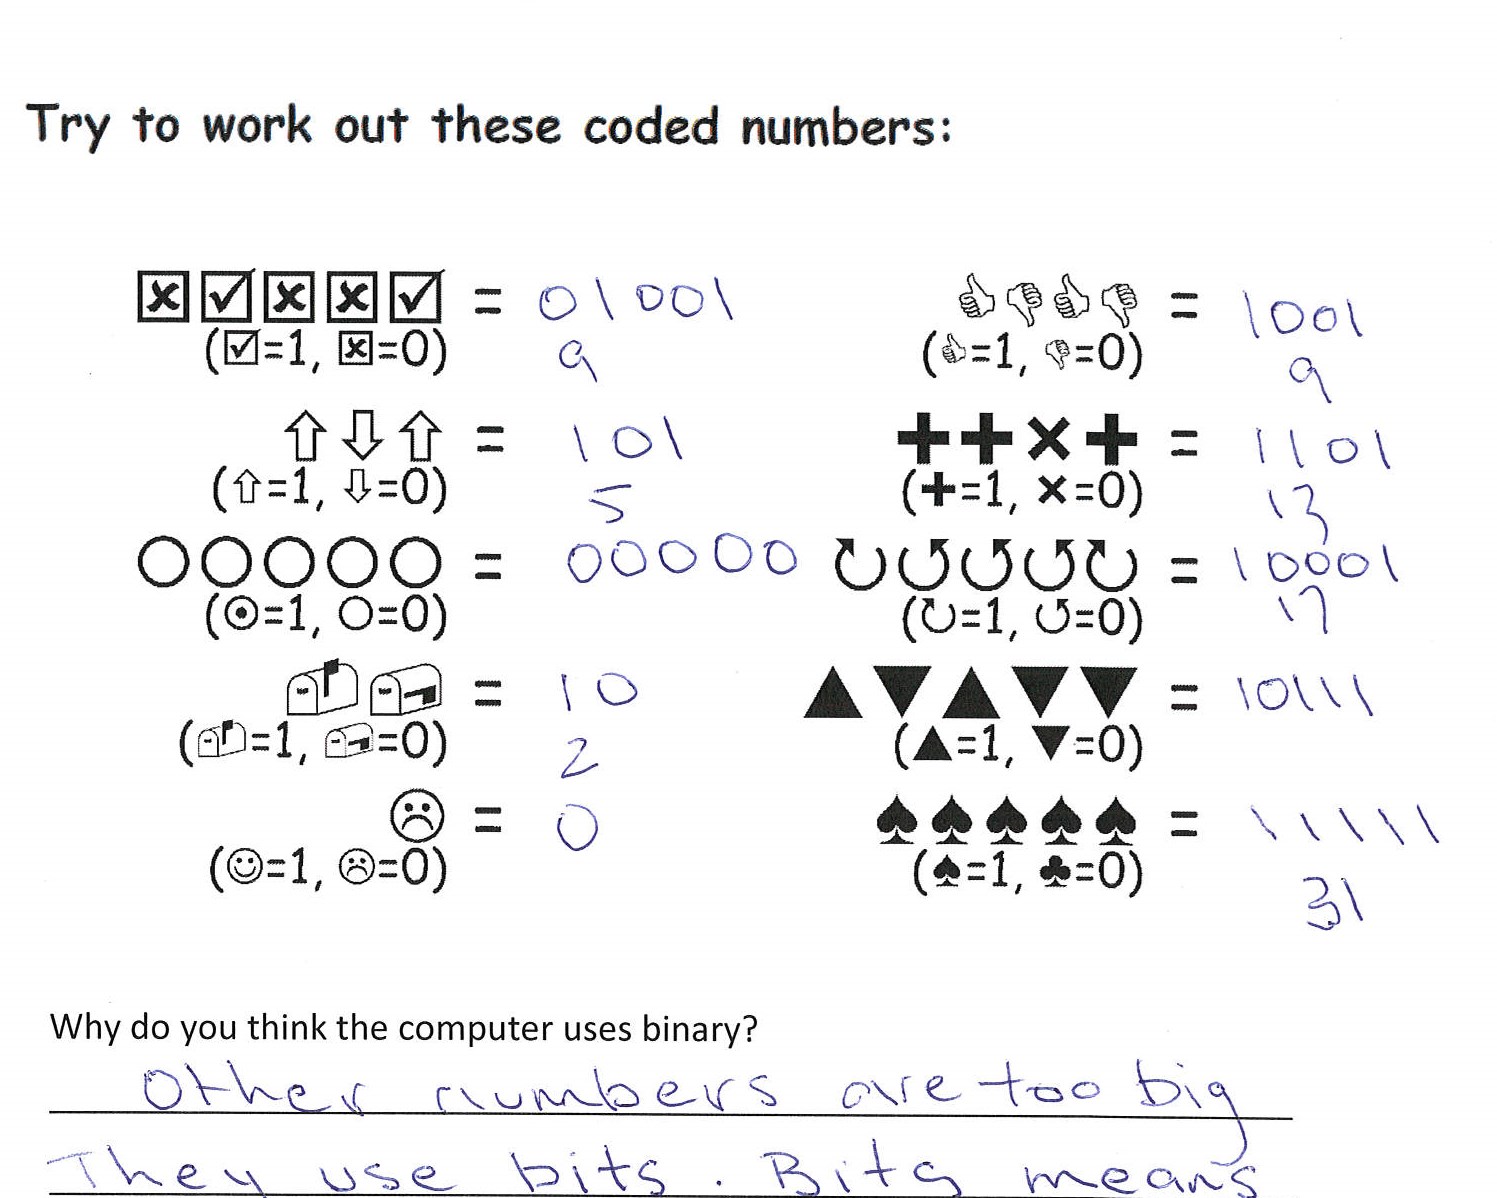 Try to work out these coded numbers:
= 01001
(☑=1, ☒=0)
9
= 1001
(👍=1, 👎=0)
9
= 101
(⇧=1, ⇩=0)
5
= 1101
(+=1, ×=0)
13
= 00000
(⊙=1, ○=0)
= 10001
(↻=1, ↺=0)
17
= 10
(📫=1, 📪=0)
2
= 10111
(▲=1, ▼=0)
= 0
(☺=1, ☹=0)
= 11111
(♠=1, ♣=0)
31
Why do you think the computer uses binary?
Other numbers are too big
They use bits. Bits means